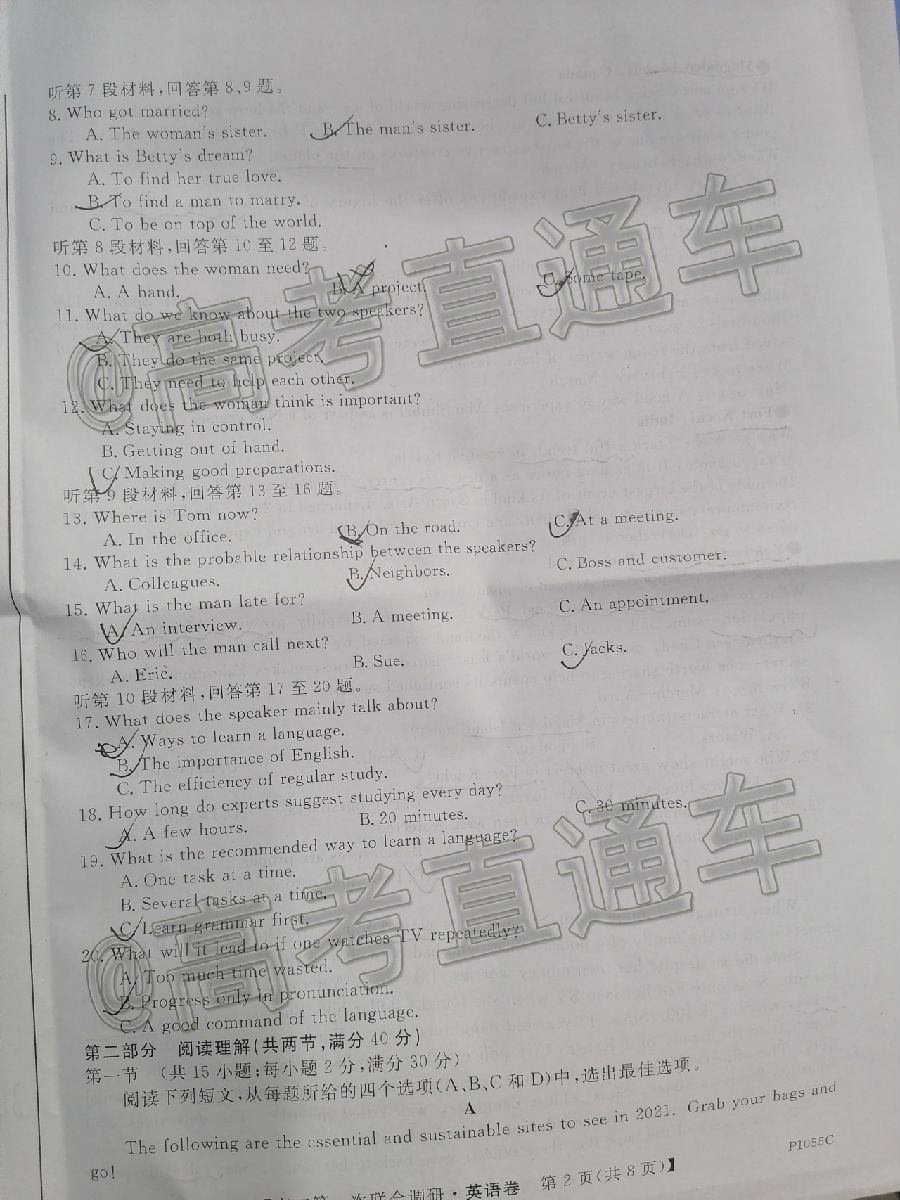 听第7段材料,回答第8、9题。
8. Who got married?
A. The woman's sister. B. The man's sister. C. Betty's sister.
9. What is Betty's dream?
A. To find her true love.
B. To find a man to marry.
C. To be on top of the world.
听第8段材料,回答第10至12题。
10. What does the woman need?
A. A hand. B. A project. C. Some tape.
11. What do we know about the two speakers?
A. They are both busy.
B. They do the same project.
C. They need to help each other.
12. What does the woman think is important?
A. Staying in control.
B. Getting out of hand.
C. Making good preparations.
听第9段材料,回答第13至16题。
13. Where is Tom now?
A. In the office. B. On the road. C. At a meeting.
14. What is the probable relationship between the speakers?
A. Colleagues. B. Neighbors. C. Boss and customer.
15. What is the man late for?
A. An interview. B. A meeting. C. An appointment.
16. Who will the man call next?
A. Eric. B. Sue. C. Jacks.
听第10段材料,回答第17至20题。
17. What does the speaker mainly talk about?
A. Ways to learn a language.
B. The importance of English.
C. The efficiency of regular study.
18. How long do experts suggest studying every day?
A. A few hours. B. 20 minutes. C. 30 minutes.
19. What is the recommended way to learn a language?
A. One task at a time.
B. Several tasks at a time.
C. Learn grammar first.
20. What will it lead to if one watches TV repeatedly?
A. Too much time wasted.
B. Progress only in pronunciation.
C. A good command of the language.
第二部分 阅读理解(共两节,满分40分)
第一节 (共15小题;每小题2分,满分30分)
阅读下列短文,从每题所给的四个选项(A、B、C和D)中,选出最佳选项。
A
The following are the essential and sustainable sites to see in 2021. Grab your bags and
go!
P1055C
次联合调研·英语卷 第2页(共8页)】
@高考直通车
@高考直通车